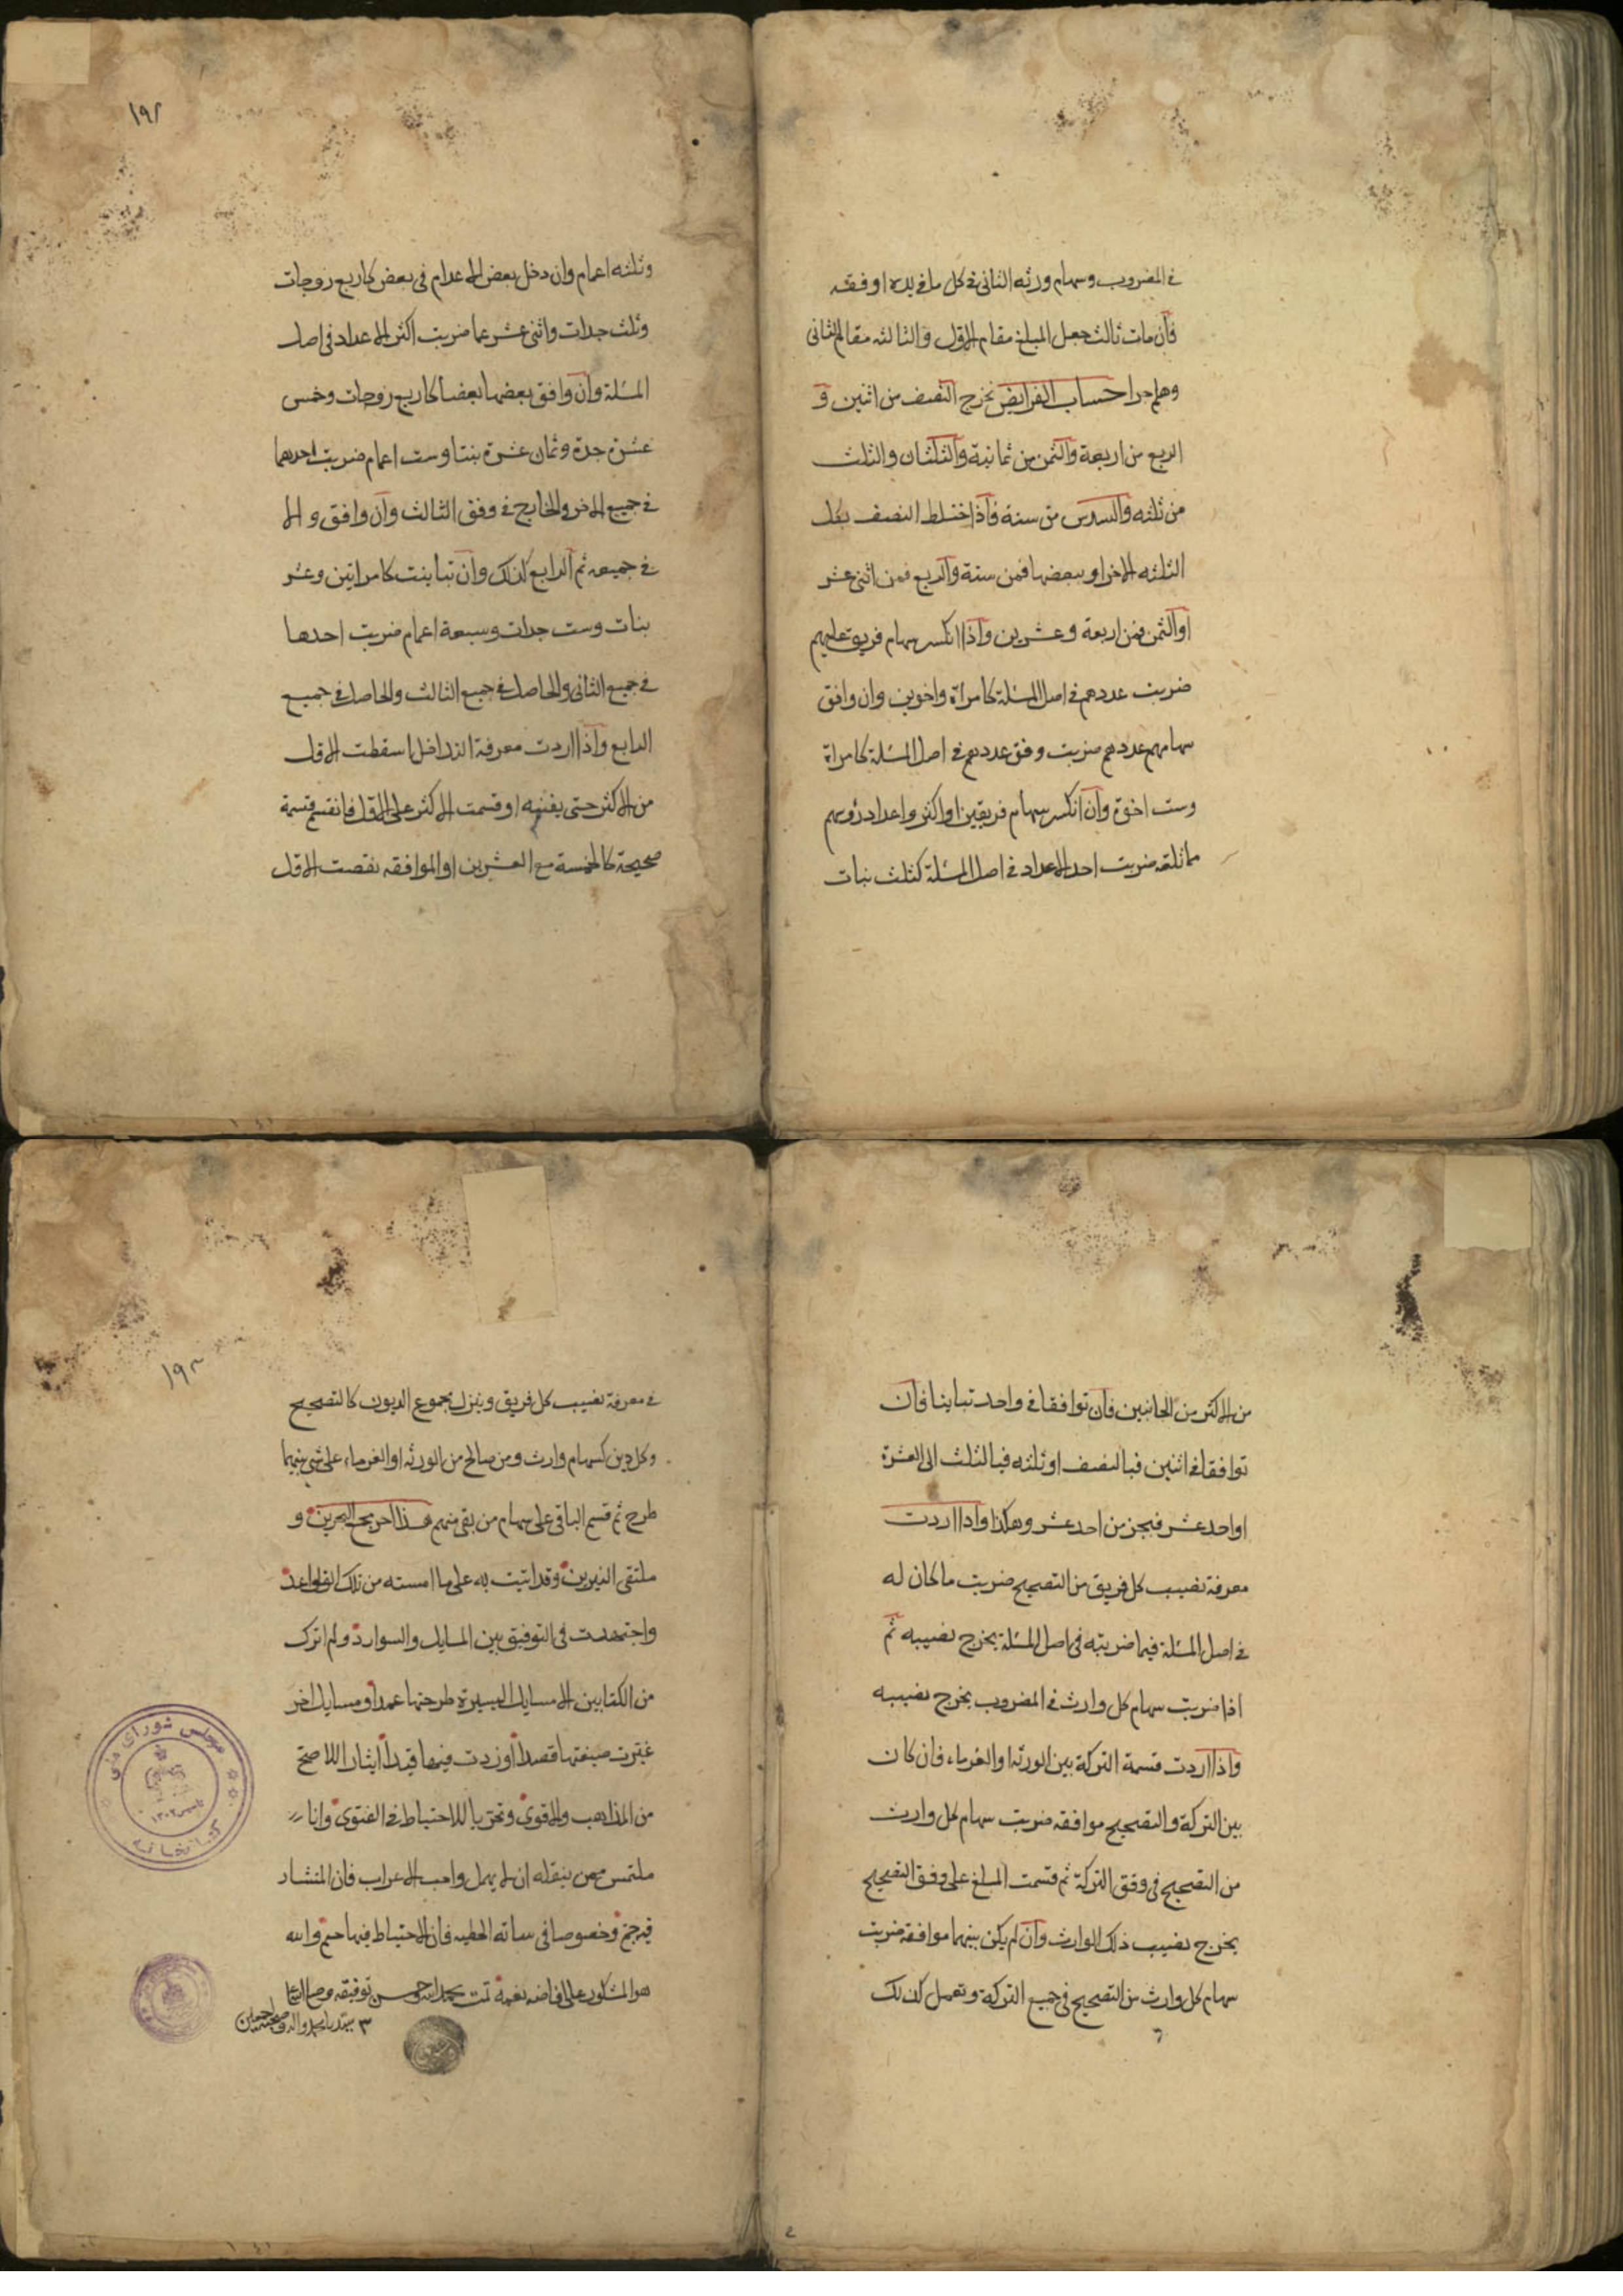 في المضروب وسهام ورثه الثاني في كل ما في يده او وفقه
فان مات ثالث جعل المبلغ مقام الاول والثالثه مقام الثاني
وهلم جرا حساب الفرايض يخرج النصف من اثنين و
الربع من اربعة والثمن من ثمانية والثلثان والثلث
من ثلثه والسدس من ستة فاذا اختلط النصف بكل
الثلثه الاخر او ببعضها فمن ستة والربع فمن اثنى عشر
او الثمن فمن اربعة وعشرين واذا انكسر سهام فريق عليهم
ضربت عددهم في اصل المسئلة كامراة واخوين وان وافق
سهامهم عددهم ضربت وفق عددهم في اصل المسئلة كامراة
وست اخوة وان انكسر سهام فريقين او اكثر واعداد رؤسهم
مماثلة ضربت احد الاعداد في اصل المسئلة كثلث بنات
١٩٢
وثلثه اعمام وان دخل بعض الاعداد في بعض كاربع زوجات
وثلث جدات واثنى عشر عما ضربت اكثر الاعداد في اصل
المسئلة وان وافق بعضها بعضا كاربع زوجات وخمس
عشرة جدة وثمان عشرة بنتا وست اعمام ضربت احدهما
في جميع الاخر والخارج في وفق الثالث وان وافق والا
في جميعه ثم الرابع كذلك وان تباينت كامراتين وعشر
بنات وست جدات وسبعة اعمام ضربت احدها
في جميع الثاني والحاصل في جميع الثالث والحاصل في جميع
الرابع واذا اردت معرفة التداخل اسقطت الاقل
من الاكثر حتى يفنيه او قسمت الاكثر على الاقل فانقسم قسمة
صحيحة كالخمسة مع العشرين او الموافقه نقصت الاقل
من الاكثر من الجانبين فان توافقا في واحد تباينا وان
توافقا في اثنين فبالنصف او ثلثه فبالثلث الى العشرة
او احد عشر فبجزء من احد عشر وهكذا واذا اردت
معرفة نصيب كل فريق من التصحيح ضربت ما كان له
في اصل المسئلة فيما ضربته في اصل المسئلة يخرج نصيبه ثم
اذا ضربت سهام كل وارث في المضروب يخرج نصيبه
واذا اردت قسمة التركة بين الورثه او الغرماء فان كان
بين التركة والتصحيح موافقه ضربت سهام كل وارث
من التصحيح في وفق التركة ثم قسمت المبلغ على وفق التصحيح
يخرج نصيب ذلك الوارث وان لم يكن بينهما موافقه ضربت
سهام كل وارث من التصحيح في جميع التركة وتعمل كذلك
١٩٣
في معرفة نصيب كل فريق وينزل مجموع الديون كالتصحيح
وكل دين كسهام وارث ومن صالح من الورثه او الغرماء على شئ منهما
طرح ثم قسم الباقي على سهام من بقي منهم هذا اخر مجمع البحرين و
ملتقى النيرين وقد اتيت به على ما اسسته من تلك القواعد
واجتهدت في التوفيق بين المسايل والسوارد ولم اترك
من الكتابين الا مسايل يسيرة طرحتها عمدا ومسايل اخر
غيرت صيغتها قصدا وزدت فيها قيدا ايثارا للاصح
من المذاهب والاقوى وتحريا للاحتياط في الفتوى وانا
ملتمس ممن ينقله ان لا يهمل واجب الاعراب فان المنشار
فيه جخ وخصوصا في ساته الخطيه فان الاحتياط فيها حتم والله
هو المشكور على افاضه نعمه تمت بحمد الله وحسن توفيقه وصلى الله على
سيدنا محمد واله وصحبه اجمعين
مجلس شورای ملی
کتابخانه